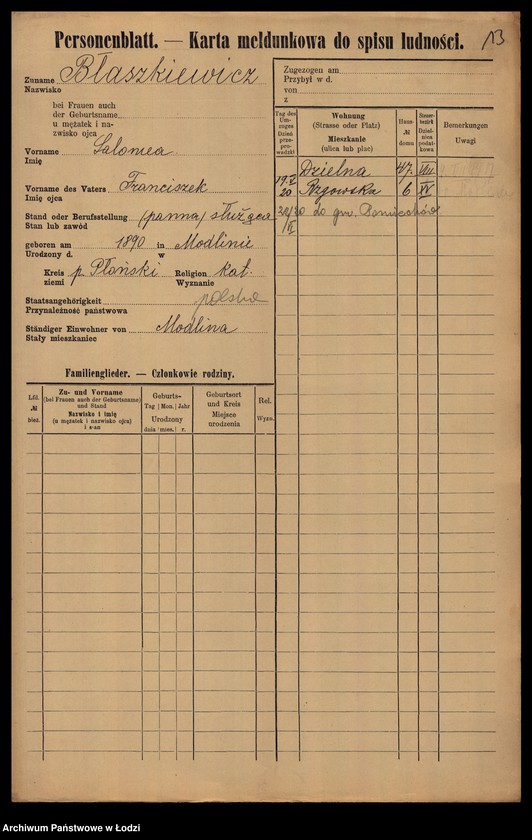 Personenblatt. — Karta meldunkowa do spisu ludności.
13
Zuname Błaszkiewicz
Nazwisko
bei Frauen auch
der Geburtsname
u mężatek i na-
zwisko ojca
Vorname Salomea
Imię
Vorname des Vaters Franciszek
Imię ojca
Stand oder Berufsstellung (panna) służąca
Stan lub zawód
geboren am 1890 in Modlinie
Urodzony d. w
Kreis p. Płoński Religion kat.
ziemi Wyznanie
Staatsangehörigkeit polska
Przynależność państwowa
Ständiger Einwohner von Modlina
Stały mieszkaniec
Familienglieder. — Członkowie rodziny.
Lfd. № bież.
Zu- und Vorname
(bei Frauen auch der Geburtsname)
und Stand
Nazwisko i imię
(u mężatek i nazwisko ojca)
i stan
Geburts-
Tag Mon. Jahr
Urodzony
dnia mies. r.
Geburtsort
und Kreis
Miejsce
urodzenia
Rel.
Wyzn.
Zugezogen am
Przybył w d.
von
z
Tag des Um-
zuges
Dzień
prze-
prowadzki
Wohnung
(Strasse oder Platz)
Mieszkanie
(ulica lub plac)
Haus-
№
domu
Steuer-
bezirk
Dziel-
nica
podat-
kowa
Bemerkungen
Uwagi
Dzielna 47. VIII
19.V 20 Rzgowska 6 XV
20/II 20 do gm.
Archiwum Państwowe w Łodzi